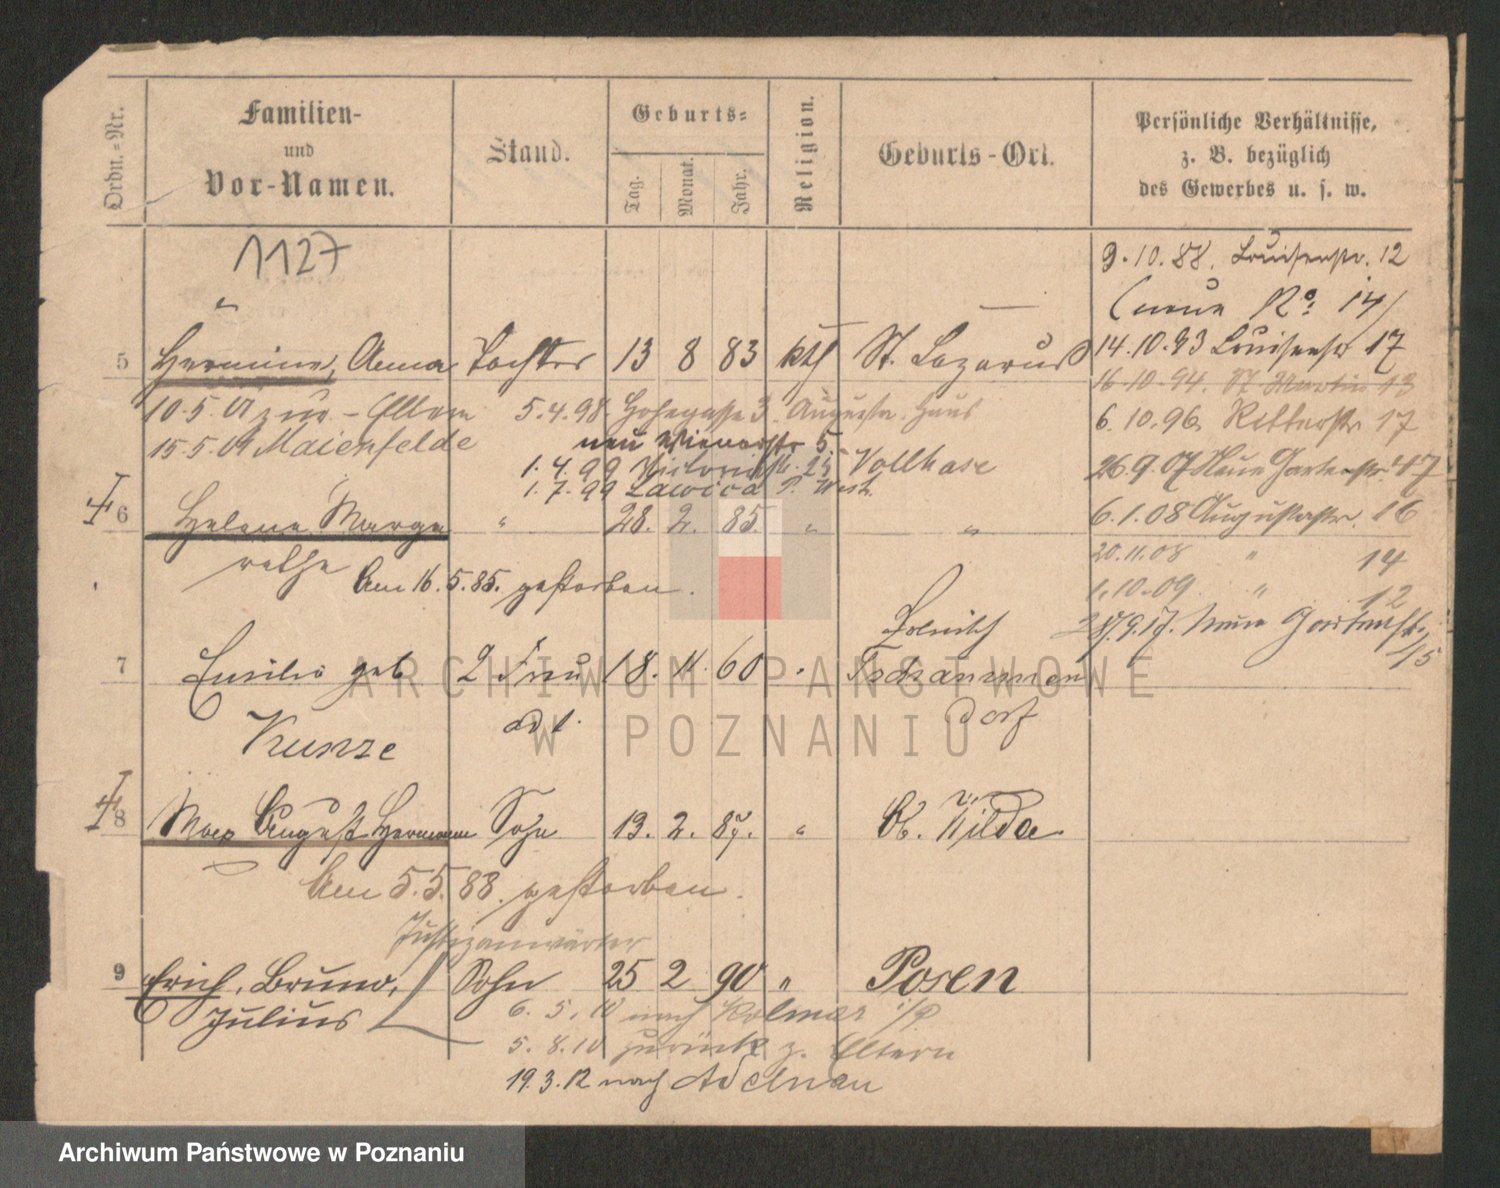 Ordn.-Nr.
Familien-
und
Vor-Namen.
Stand.
Geburts-
Tag.
Monat.
Jahr.
Religion.
Geburts-Ort.
Persönliche Verhältnisse,
z. B. bezüglich
des Gewerbes u. s. w.
1127
9.10.88. Louisenstr. 12
(neue No: 14)
5 Hermine, Anna Tochter 13 8 83 kth St. Lazarus
14.10.93 Louisenstr 17
16.10.94. St Martin 13
10.5.01 zur - Eltern
5.4.98. Hohegasse 3. Augusta-Haus
6.10.96. Ritterstr 17
15.5.01 Maienfelde
neu Wienerstr 5.
1.4.99 Victoriastr. 25 Vollhase
26.9.07 Neue Gartenstr. 17
1.7.99 Lawica P. West.
6 Helene Marga- " 28. 2. 85. " "
6.1.08 Augustastr. 16
rethe
20.11.08 " 14
Am 16.5.85. gestorben.
1.10.09. " 12
27.9.17. Neue Gartenstr.
15
7 Emilie geb. 2 Frau 18. 11. 60 Tschanzen
Kunze
dorf
8 Max August Hermann Sohn 13. 2. 87. " Ob. Wilda
Am 5.5.88. gestorben.
Justizanwärter
9 Erich, Bruno, Sohn 25 2 90 " Posen
Julius
6.5.10 nach Kolmar i/P
5.8.10 zurück z. Eltern
19.3.12 nach Adelnau
ARCHIWUM PAŃSTWOWE
W POZNANIU
Archiwum Państwowe w Poznaniu